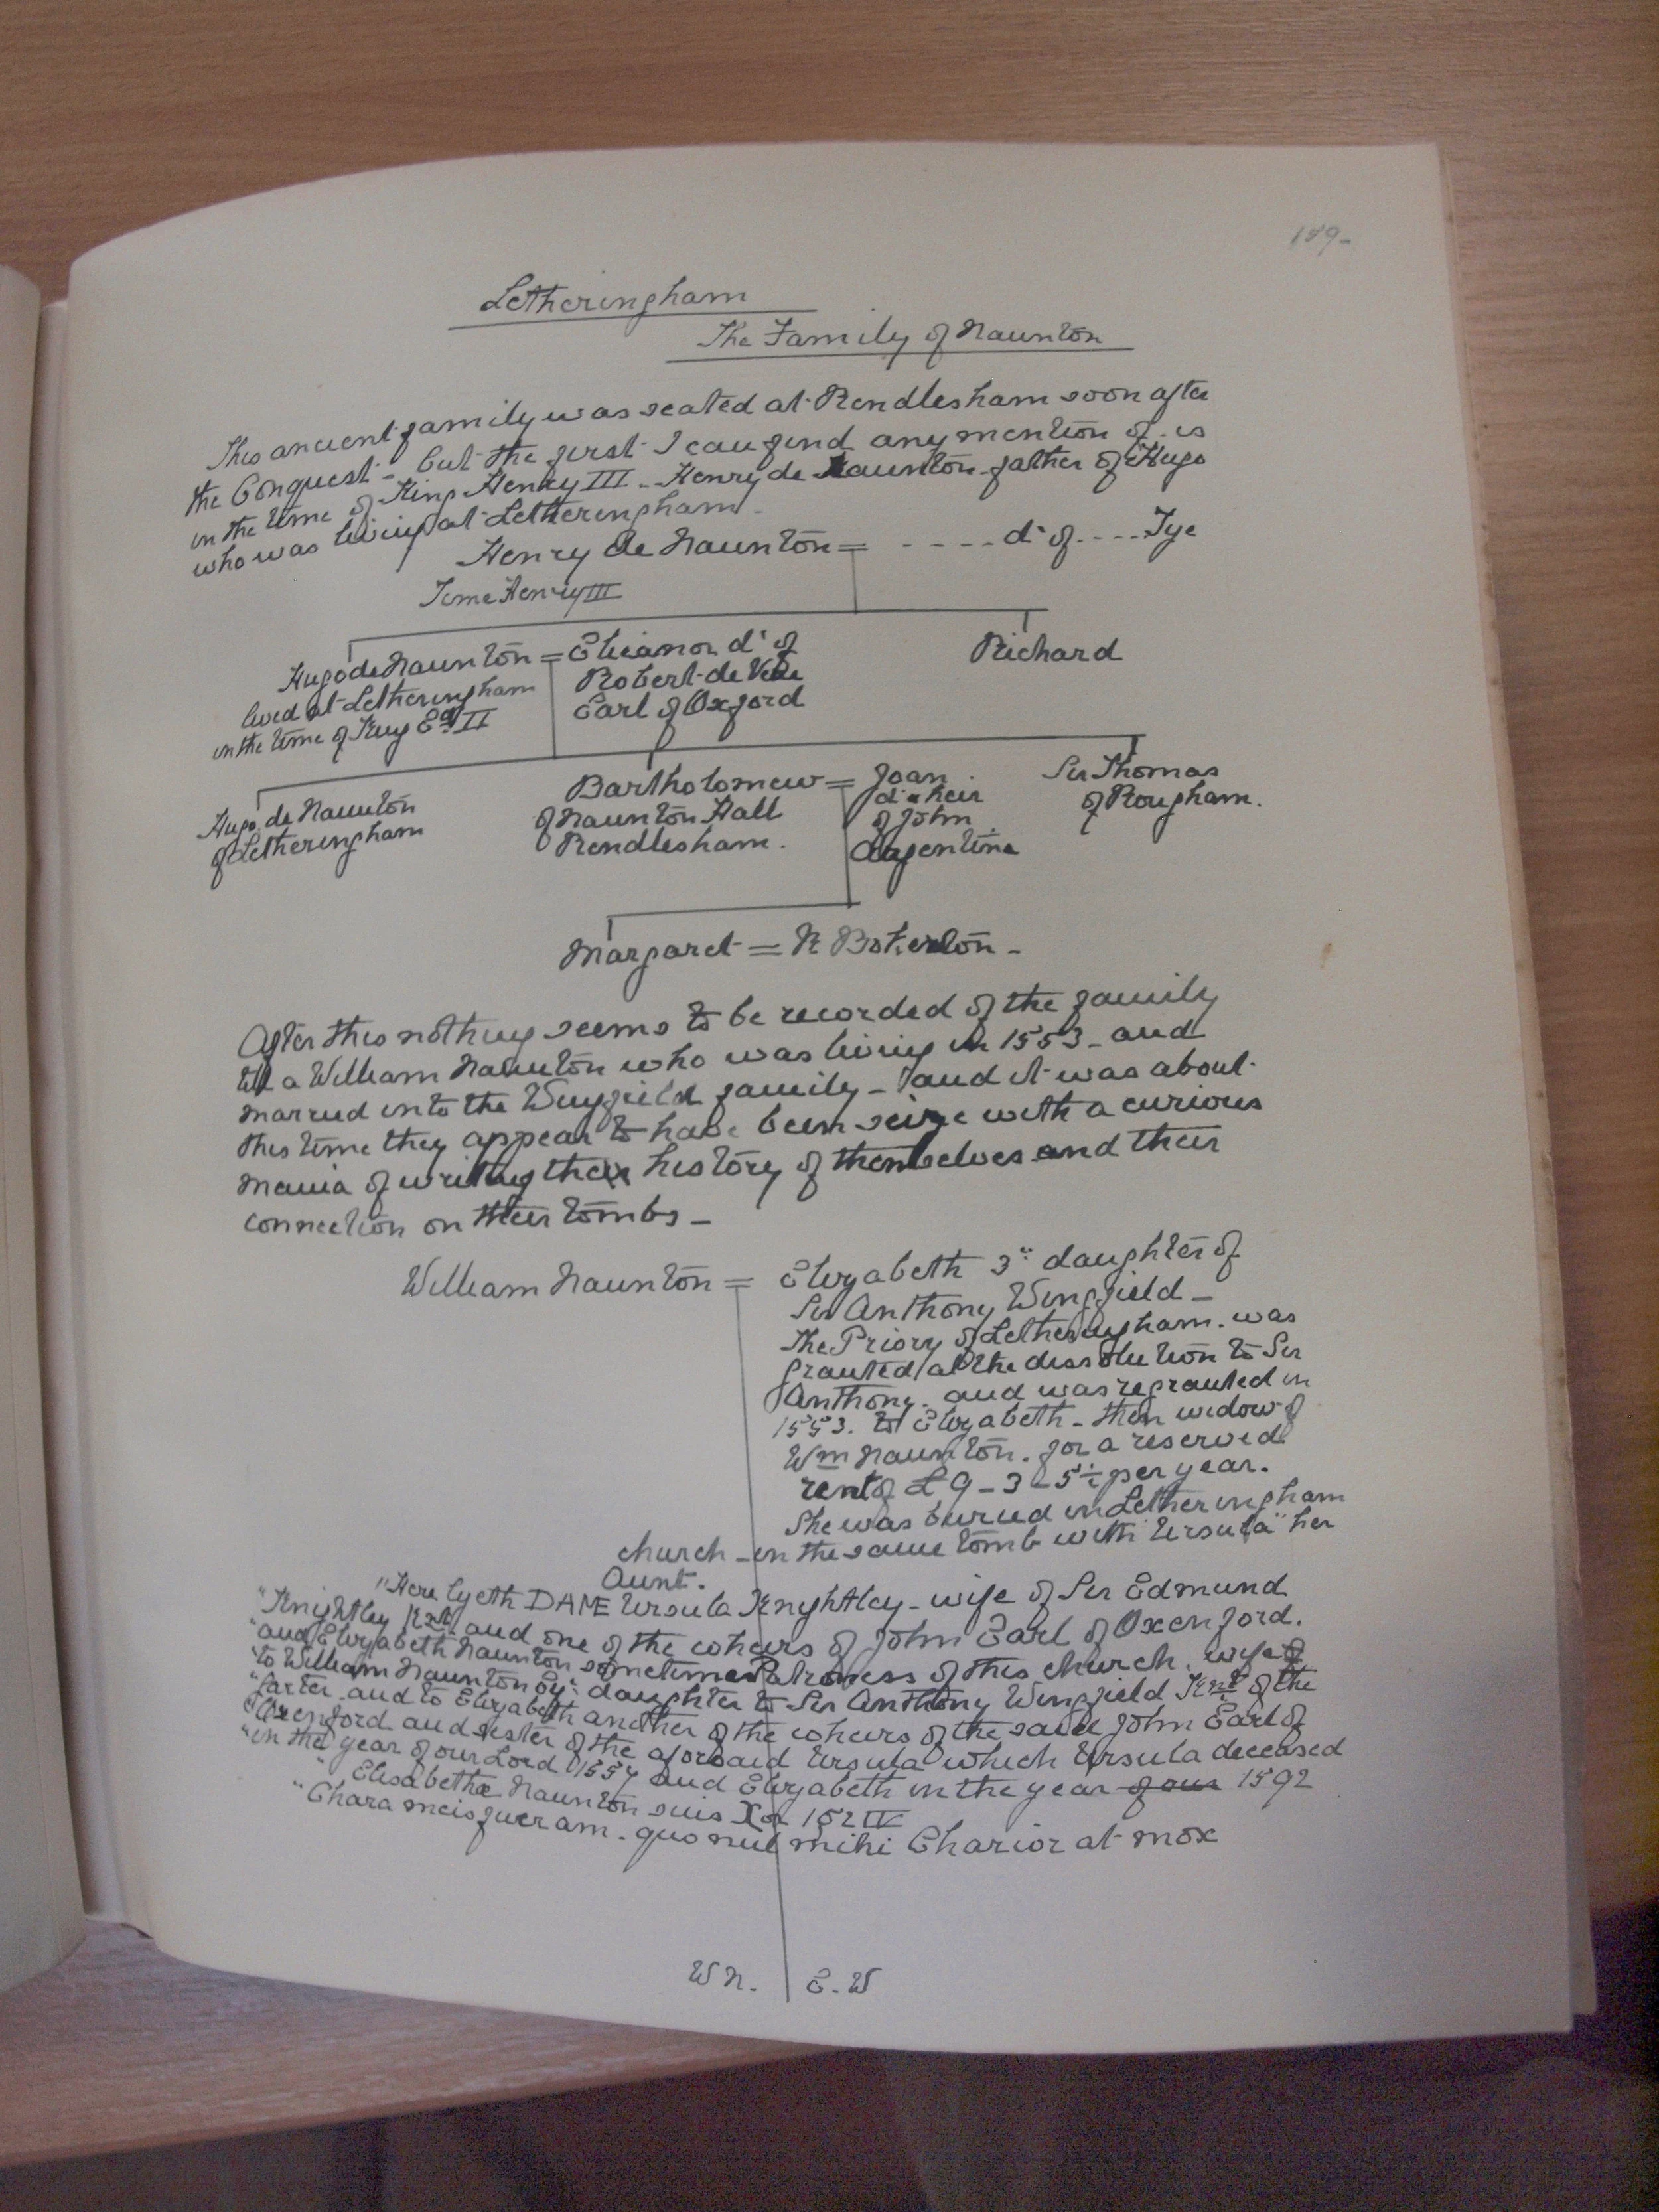 189-
Letheringham
The Family of Naunton
This ancient family was seated at Rendlesham soon after
the Conquest - but the first I can find any mention of is
in the time of King Henry III - Henry de Naunton father of Hugo
who was living at Letheringham -
Henry de Naunton = - - - - d' of - - - - Tye
Time Henry III
Hugo de Naunton = Eleanor d' of
Richard
lived at Letheringham
Robert de Vere
in the time of King Ed II
Earl of Oxford
Hugo de Naunton
of Letheringham
Bartholomew = Joan
of Naunton Hall
Rendlesham.
d' & heir
of John
Argentine
Sir Thomas
of Rougham.
Margaret = R Boterton -
After this nothing seems to be recorded of the family
till a William Naunton who was living in 1553 - and
married into the Wingfield family - and it was about
this time they appear to have been seize with a curious
mania of writing the history of themselves and their
connection on their tombs -
William Naunton = Elizabeth 3" daughter of
Sir Anthony Wingfield -
The Priory of Letheringham. was
granted at the dissolution to Sir
Anthony - and was regranted in
1553. to Elizabeth - then widow of
Wm Naunton. for a reserved
rent of £9 - 3 - 5½ per year.
She was buried in Letheringham
church - in the same tomb with "Ursula" her
Aunt.
"Here lyeth DAME Ursula Knyghtley - wife of Sir Edmund
"Knightley Knt and one of the coheirs of John Earl of Oxenford.
"and Elizabeth Naunton sometime Patroness of this church. wife
"to William Naunton Esq" daughter to Sir Anthony Wingfield Knt of the
"Garter and to Elizabeth another of the coheirs of the said John Earl of
"Oxenford and sister of the aforsaid Ursula which Ursula deceased
"in the year of our Lord 1554 and Elizabeth in the year of our 1592
"Elisabethæ Naunton suis
"Chara meis fueram. quo nul mihi Charior at mox
W N. E. W